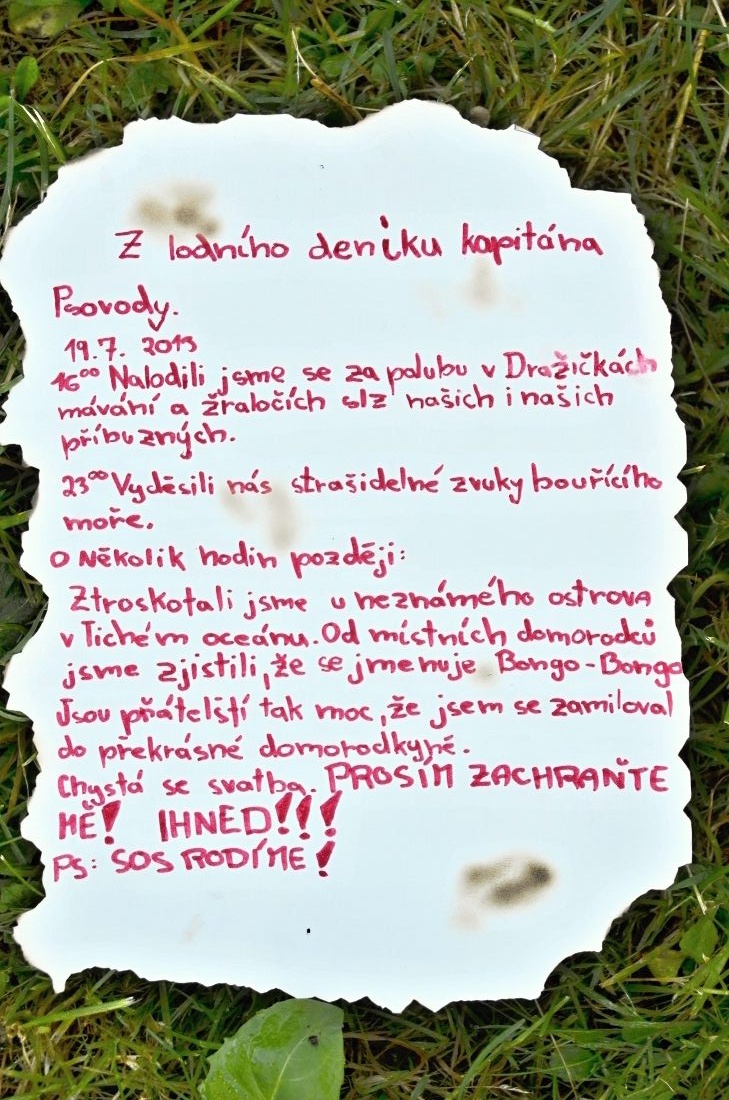 Z lodního deniku kapitána
Psovody.
19.7. 2013
16⁰⁰ Nalodili jsme se za palubu v Dražičkách
mávání a žraločích slz našich i našich
příbuzných.
23⁰⁰ Vyděsili nás strašidelné zvuky bouřícího
moře.
O Několik hodin později:
Ztroskotali jsme u neznámého ostrova
v Tichém oceánu. Od místních domorodců
jsme zjistili, že se jmenuje Bongo-Bongo
Jsou přátelští tak moc, že jsem se zamiloval
do překrásné domorodkyně.
Chystá se svatba. PROSÍM ZACHRAŇTE
MĚ! IHNED!!!
PS: SOS RODÍME!